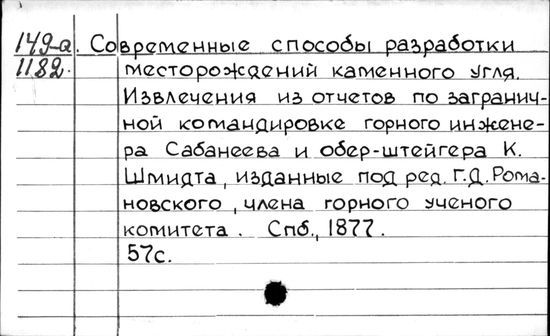 149-а. Современные способы разработки
1182. месторождений каменного угля.
Извлечения из отчетов по загранич-
ной командировке горного инжене-
ра Сабанеева и обер-штейгера К.
Шмидта, изданные под ред. Г.Д. Рома-
новского, члена горного ученого
комитета. Спб., 1877.
57с.